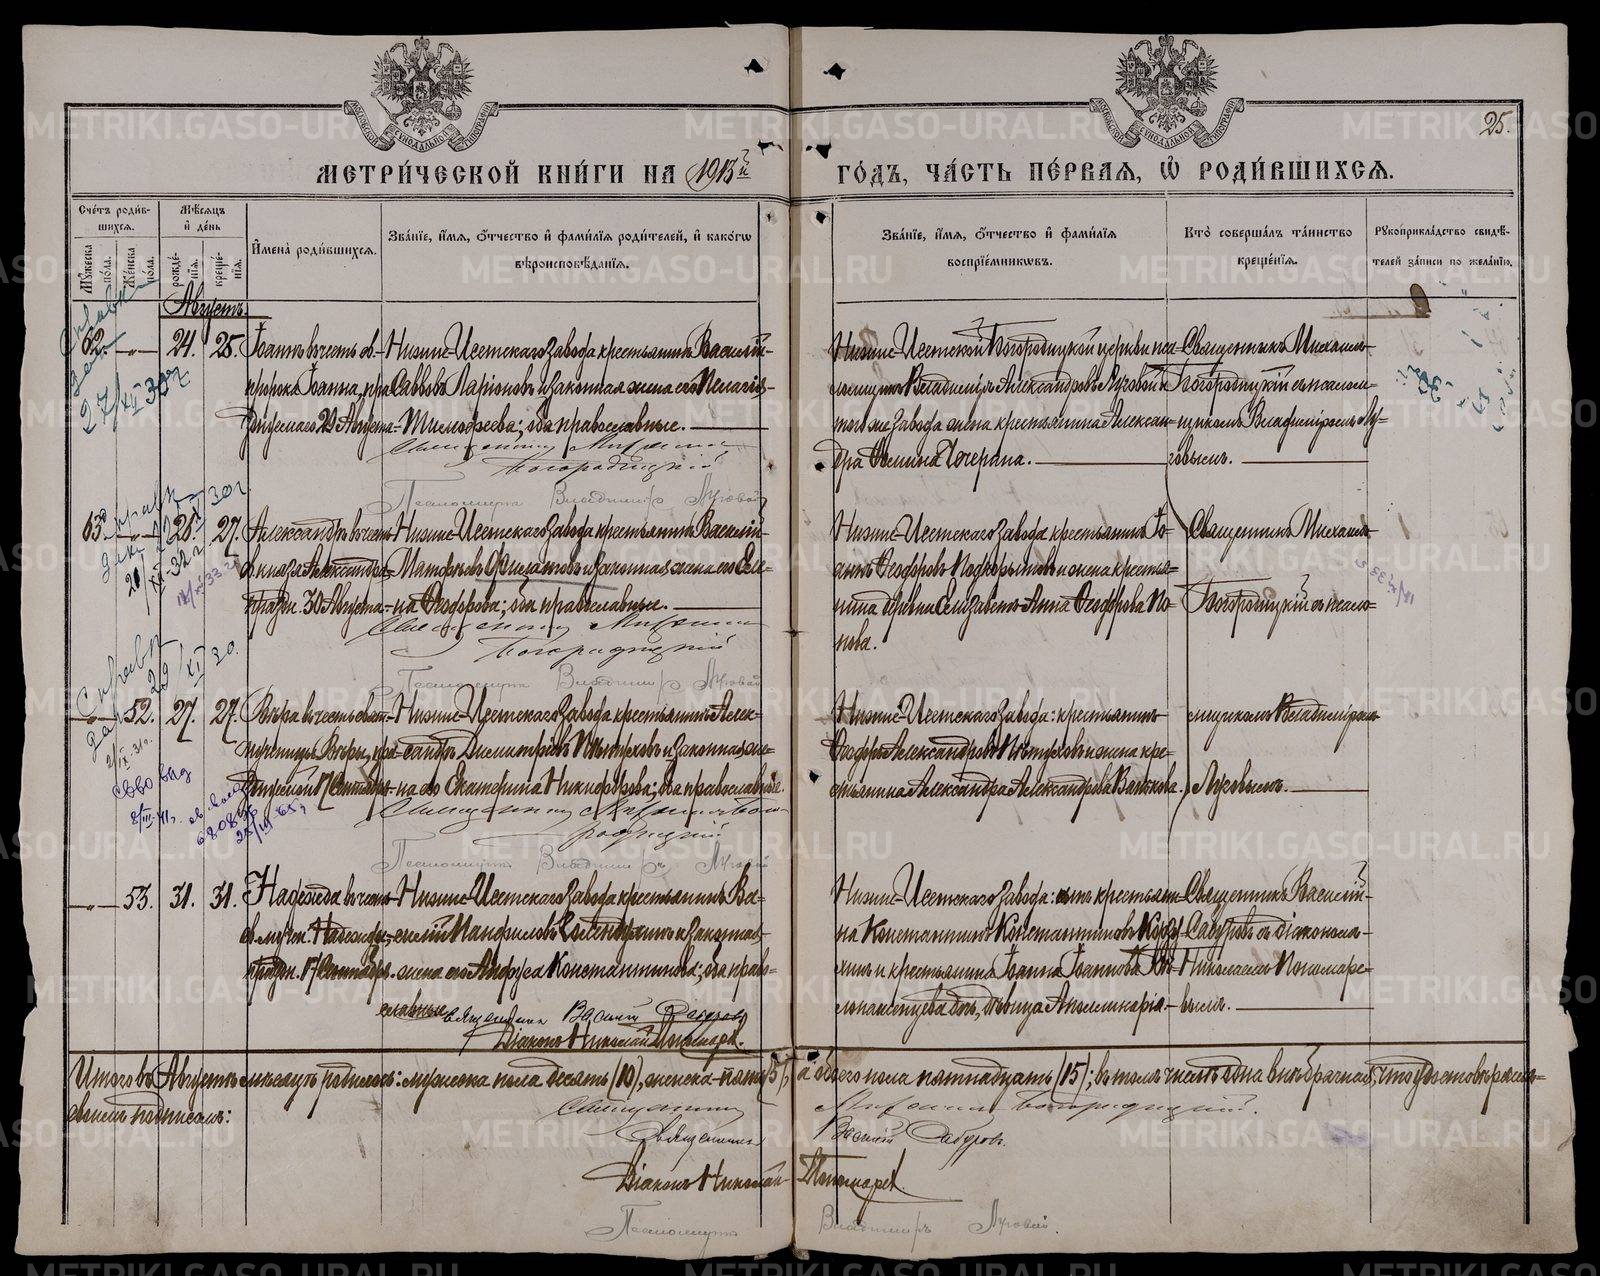 МЕТРИ́ЧЕСКОЙ КНИ́ГИ НА 1913й ГО́ДЪ, ЧА́СТЬ ПЕ́РВАЯ, Ѡ҆ РОДИ́ВШИХСЯ.
25.
Сче́тъ роди́в-
шихся.
Мѣ́сяцъ
и҆ де́нь
И҆мена̀ роди́вшихся.
Зва́нїе, и҆́мя, ѻ҆́тчество и҆ фами́лїя роди́телей, и҆ како́гѡ
вѣроисповѣ́данїя.
Зва́нїе, и҆́мя, ѻ҆́тчество и҆ фами́лїя
воспрїе́мникѡвъ.
Кто̀ соверша́лъ та́инство
креще́нїя.
Рꙋкоприкла́дство свидѣ́-
телей за́писи по жела́нїю.
Мꙋ́жеска
по́ла.
Же́нска
по́ла.
рожде́-
нїя.
креще́-
нїя.
Августъ.
62. 24. 25.
Іоаннъ въ честь св.
пророка Іоанна, пра
зднуемаго 29 Августа
Нижне-Исетскаго завода крестьянинъ Василій
Саввовъ Ларіоновъ и законная жена его Пелагія
Тимофеева; оба православные.
Священникъ Михаилъ
Богородицкій
Псаломщикъ Владиміръ Луговой
Нижне-Исетской Богородицкой церкви пса-
ломщикъ Владиміръ Александровъ Луговой и
того же завода жена крестьянина Алексан-
дра Фомина
Священникъ Михаилъ
Богородицкій съ псалом-
щикомъ Владиміромъ Лу-
говымъ.
Справка
27/XII 30 г
63. 25. 27.
Александръ въ честь
в. князя Александра
праздн. 30 Августа
Нижне-Исетскаго завода крестьянинъ Василій
Матфѣевъ Филатовъ и законная жена его Еле-
на Феодорова; оба православные.
Священникъ Михаилъ
Богородицкій
Псаломщикъ Владиміръ Луговой
Нижне-Исетскаго завода крестьянинъ Іо-
аннъ Феодоровъ Подкорытовъ и жена крестья-
нина деревни Елизаветъ Анна Феодорова По-
пова.
Священникъ Михаилъ
Богородицкій съ псало-
Справка
52. 27. 27.
Вѣра въ честь свят.
мученицы Вѣры, пра
зднуемой 17 Сентября
Нижне-Исетскаго завода крестьянинъ Алек-
сандръ Димитріевъ Пѣтуховъ и законная же-
на его Екатерина Никифорова; оба православные.
Священникъ Михаилъ Бого-
родицкій
Псаломщикъ Владиміръ Луговой
Нижне-Исетскаго завода: крестьянинъ
Феодоръ Александровъ Пѣтуховъ и жена кре-
стьянина Александра Александрова Ванькова.
мщикомъ Владиміромъ
Луговымъ.
53. 31. 31.
Надежда въ честь
св. мучен. Надежды,
праздн. 17 Сентября
Нижне-Исетскаго завода крестьянинъ Ва-
силій Панфиловъ и законная
жена его Андрея Константинова; оба право-
славные
Священникъ Василій Сабуровъ
Діаконъ Николай Пономарев.
Нижне-Исетскаго завода: сынъ крестьяни-
на Константинъ Константиновъ
и крестьянина Іоанна Іоаннова
дочь, дѣвица Аполлинарія
Священникъ Василій
Сабуровъ съ діакономъ
Николаемъ Пономаре-
вымъ.
Итого въ Августѣ мѣсяцѣ родилось: мужеска пола десять (10), женска-пять (5), а обоего пола пятнадцать (15); въ томъ числѣ одна внѣбрачная, что удостовѣряемъ
своимъ подписомъ:
Священникъ Михаилъ Богородицкій.
Священникъ Василій Сабуровъ.
Діаконъ Николай Пономарев
Псаломщикъ Владиміръ Луговой.
METRIKI.GASO-URAL.RU